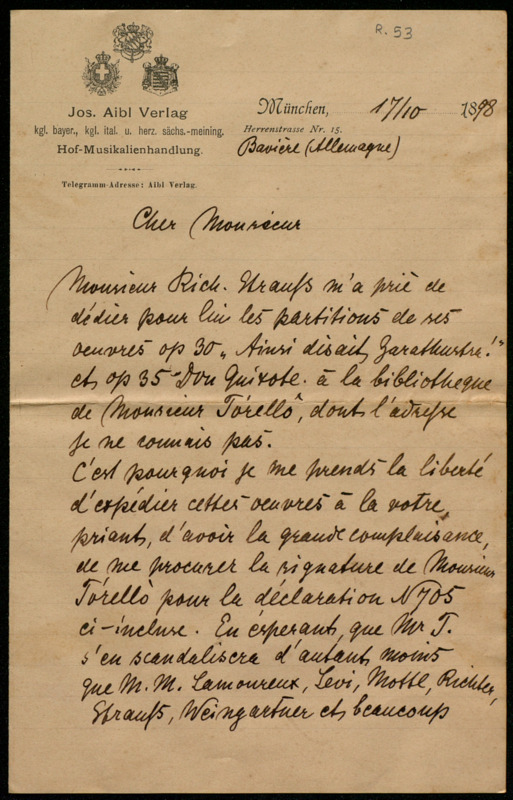 R. 53
Jos. Aibl Verlag
kgl. bayer., kgl. ital. u. herz. sächs.-meining.
Hof-Musikalienhandlung.
Telegramm-Adresse: Aibl Verlag.
München, 17/10 1898
Herrenstrasse Nr. 15.
Bavière (Allemagne)
Cher Monsieur
Monsieur Rich. Strauß m'a prié de
dédier pour lui les partitions de ses
oeuvres op 30 „Ainsi disait Zarathustra!"
et op 35 "Don Quixote. à la bibliotheque
de Monsieur Tórellô, dont l'adreße
je ne connais pas.
C'est pourquoi je me prends la liberté
d'expédier cettes oeuvres à la votre,
priant, d'avoir la grande complaisance,
de me procurer la signature de Monsieur
Tórellò pour la déclaration N 705
ci-incluse. En ésperant, que Mr T.
s'en scandalisera d'autant moins
que M. M. Lamoureux, Levi, Mottl, Richter,
Strauß, Weingartner et beaucoup